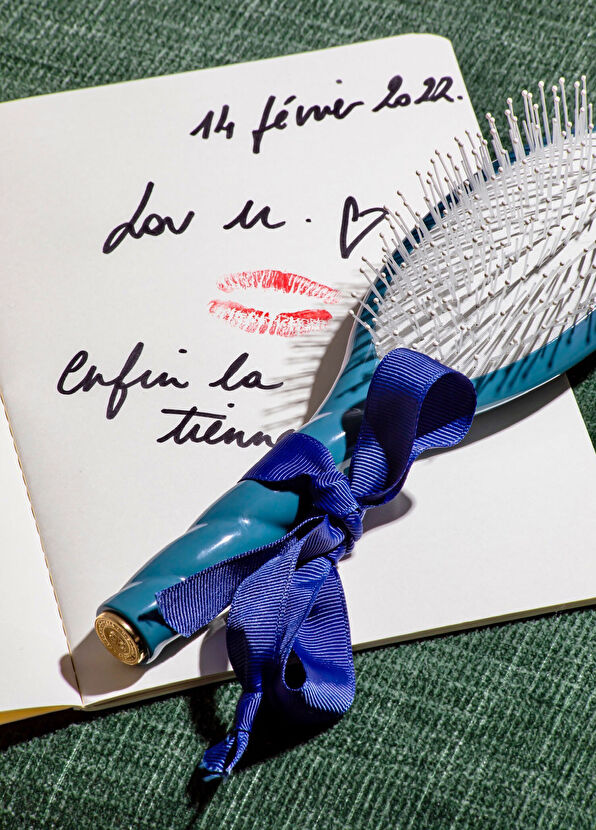 14 février 2022.
Lov u. ♡
enfin la
tienne